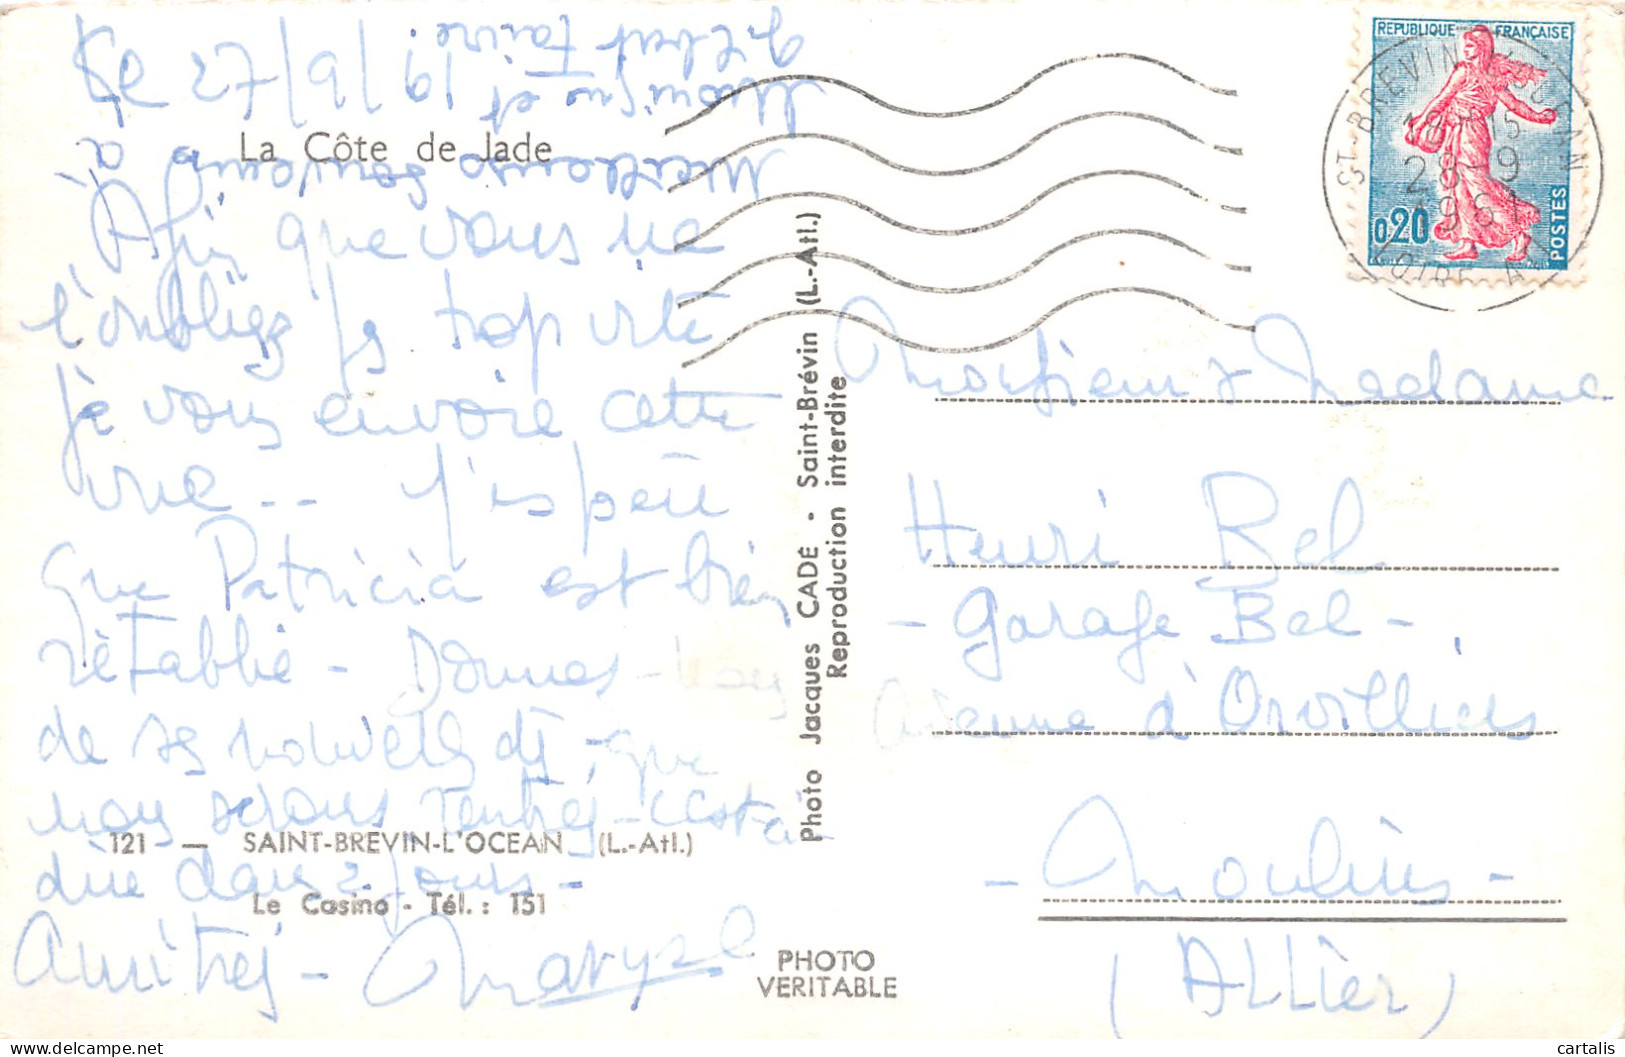 La Côte de Jade
Afin que vous ne
l'oubliez pas trop vite
je vous envoie cette
vue .. J'espère
que Patricia est bien
rétablie - Donnez-nous
de ses nouvelles dès que
nous serons rentrés - c'est-à-
dire dans 2 jours -
Amitiés - Maryse
Meilleurs souvenirs à
Monique et
Gilbert Faivre.
121 — SAINT-BREVIN-L'OCEAN (L.-Atl.)
Le Casino - Tél. : 151
Photo Jacques CADE - Saint-Brévin (L.-Atl.)
Reproduction interdite
PHOTO
VERITABLE
REPUBLIQUE FRANÇAISE
0,20
POSTES
ST-BREVIN-L'OCEAN
18H15
28-9
1961
LOIRE-A
Monsieur & Madame
Henri Bel
- Garage Bel -
Avenue d'Orvilliers
- Moulins -
(ALLier)
cartalis